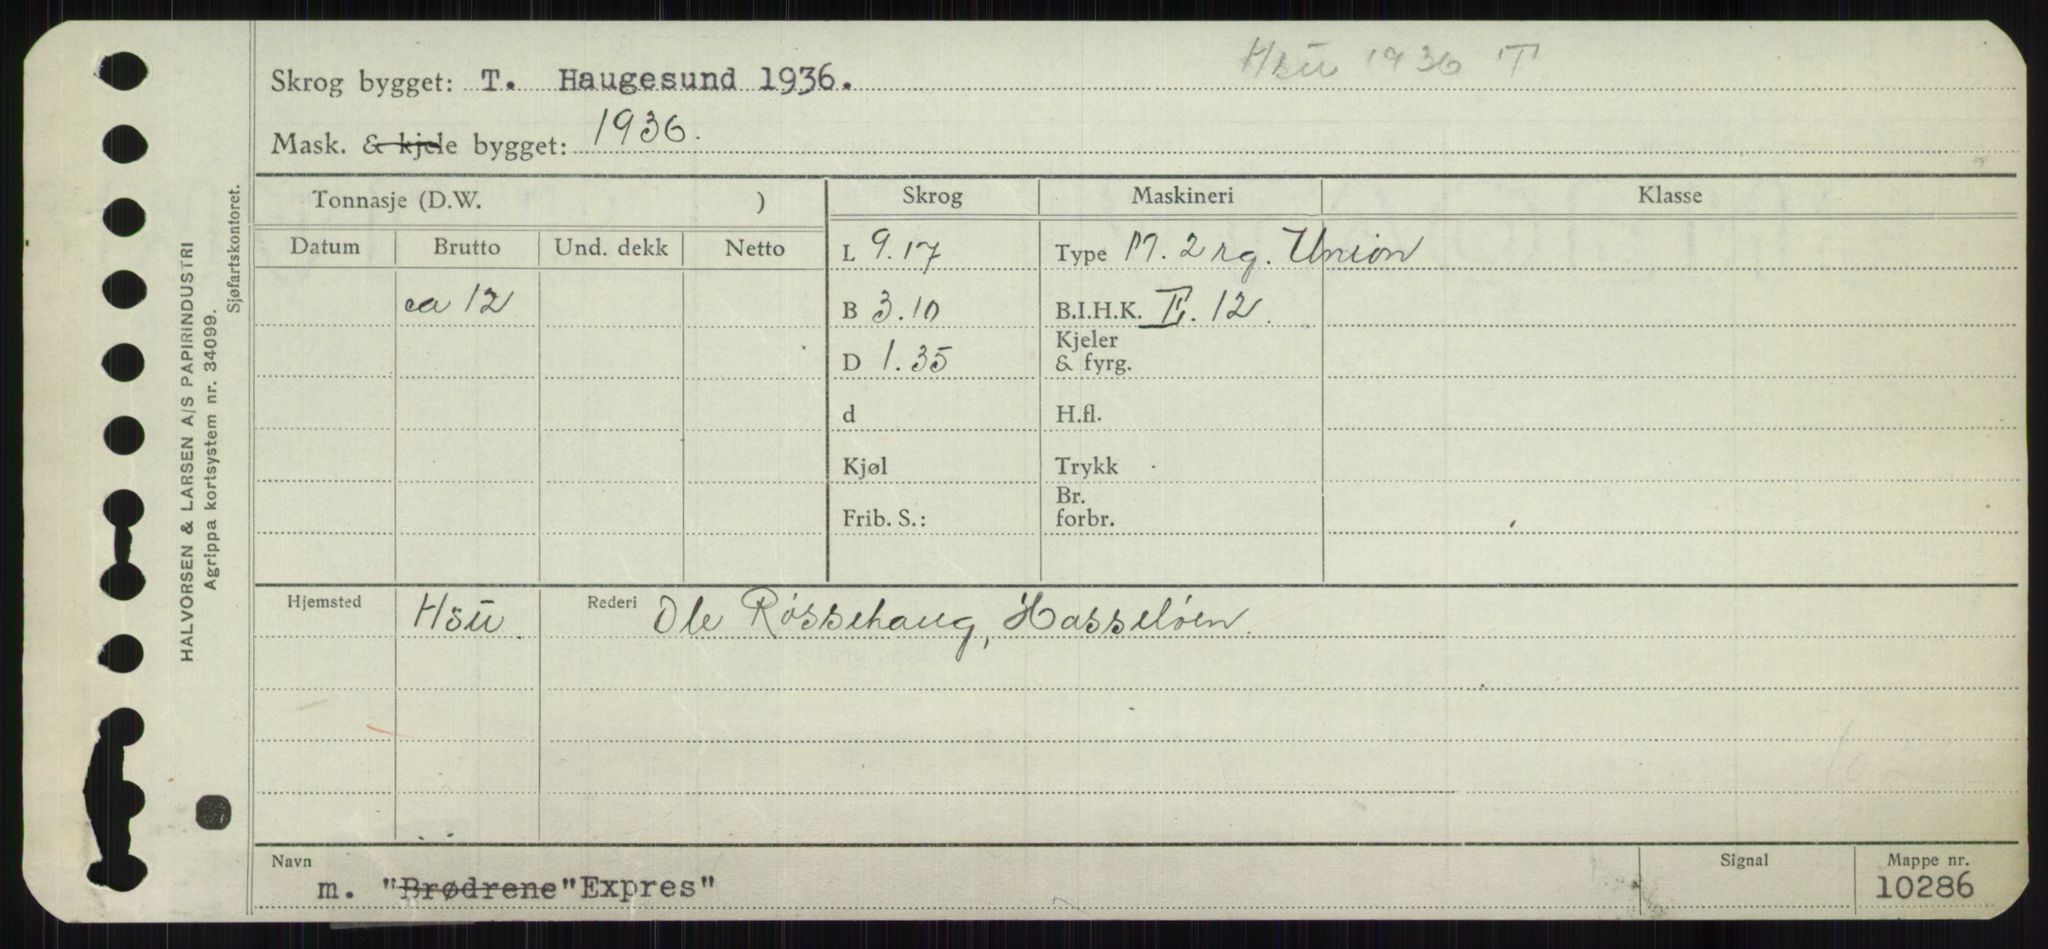 Hsu 1936 T
Skrog bygget: T. Haugesund 1936.
Mask. & kjele bygget: 1936.
Tonnasje (D.W. ) Skrog Maskineri Klasse
Datum Brutto Und. dekk Netto L 9.17 Type M. 2 rg. Union
ca 12 B 3.10 B.I.H.K. I. 12.
D 1.35 Kjeler & fyrg.
d H.fl.
Kjøl Trykk
Frib. S.: Br. forbr.
Hjemsted Hsu. Rederi Ole Røssehaug, Hasseløen.
Navn Signal Mappe nr.
m. "Brødrene" Expres" 10286
HALVORSEN & LARSEN A/S PAPIRINDUSTRI
Agrippa kortsystem nr. 34099.
Sjøfartskontoret.